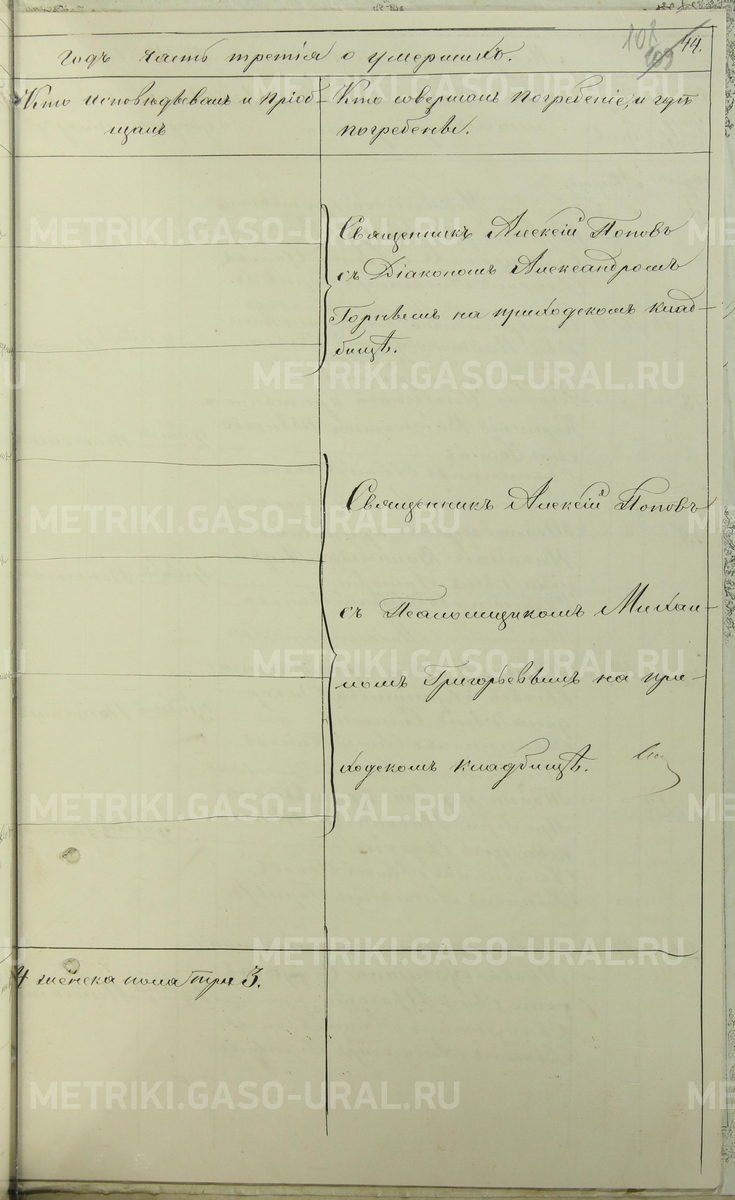 108 109 44.
Годъ часть третія о умершихъ.
Кто исповѣдывалъ и пріоб-
щалъ
Кто совершалъ погребеніе, и гдѣ
погребены.
Священникъ Алексій Поповъ
съ Діакономъ Александромъ
Горнымъ на приходскомъ клад-
бищѣ.
Священникъ Алексій Поповъ
съ Псаломщикомъ Михаи-
ломъ Григорьевымъ на при-
ходскомъ кладбищѣ.
4 женска пола три 3.
METRIKI.GASO-URAL.RU